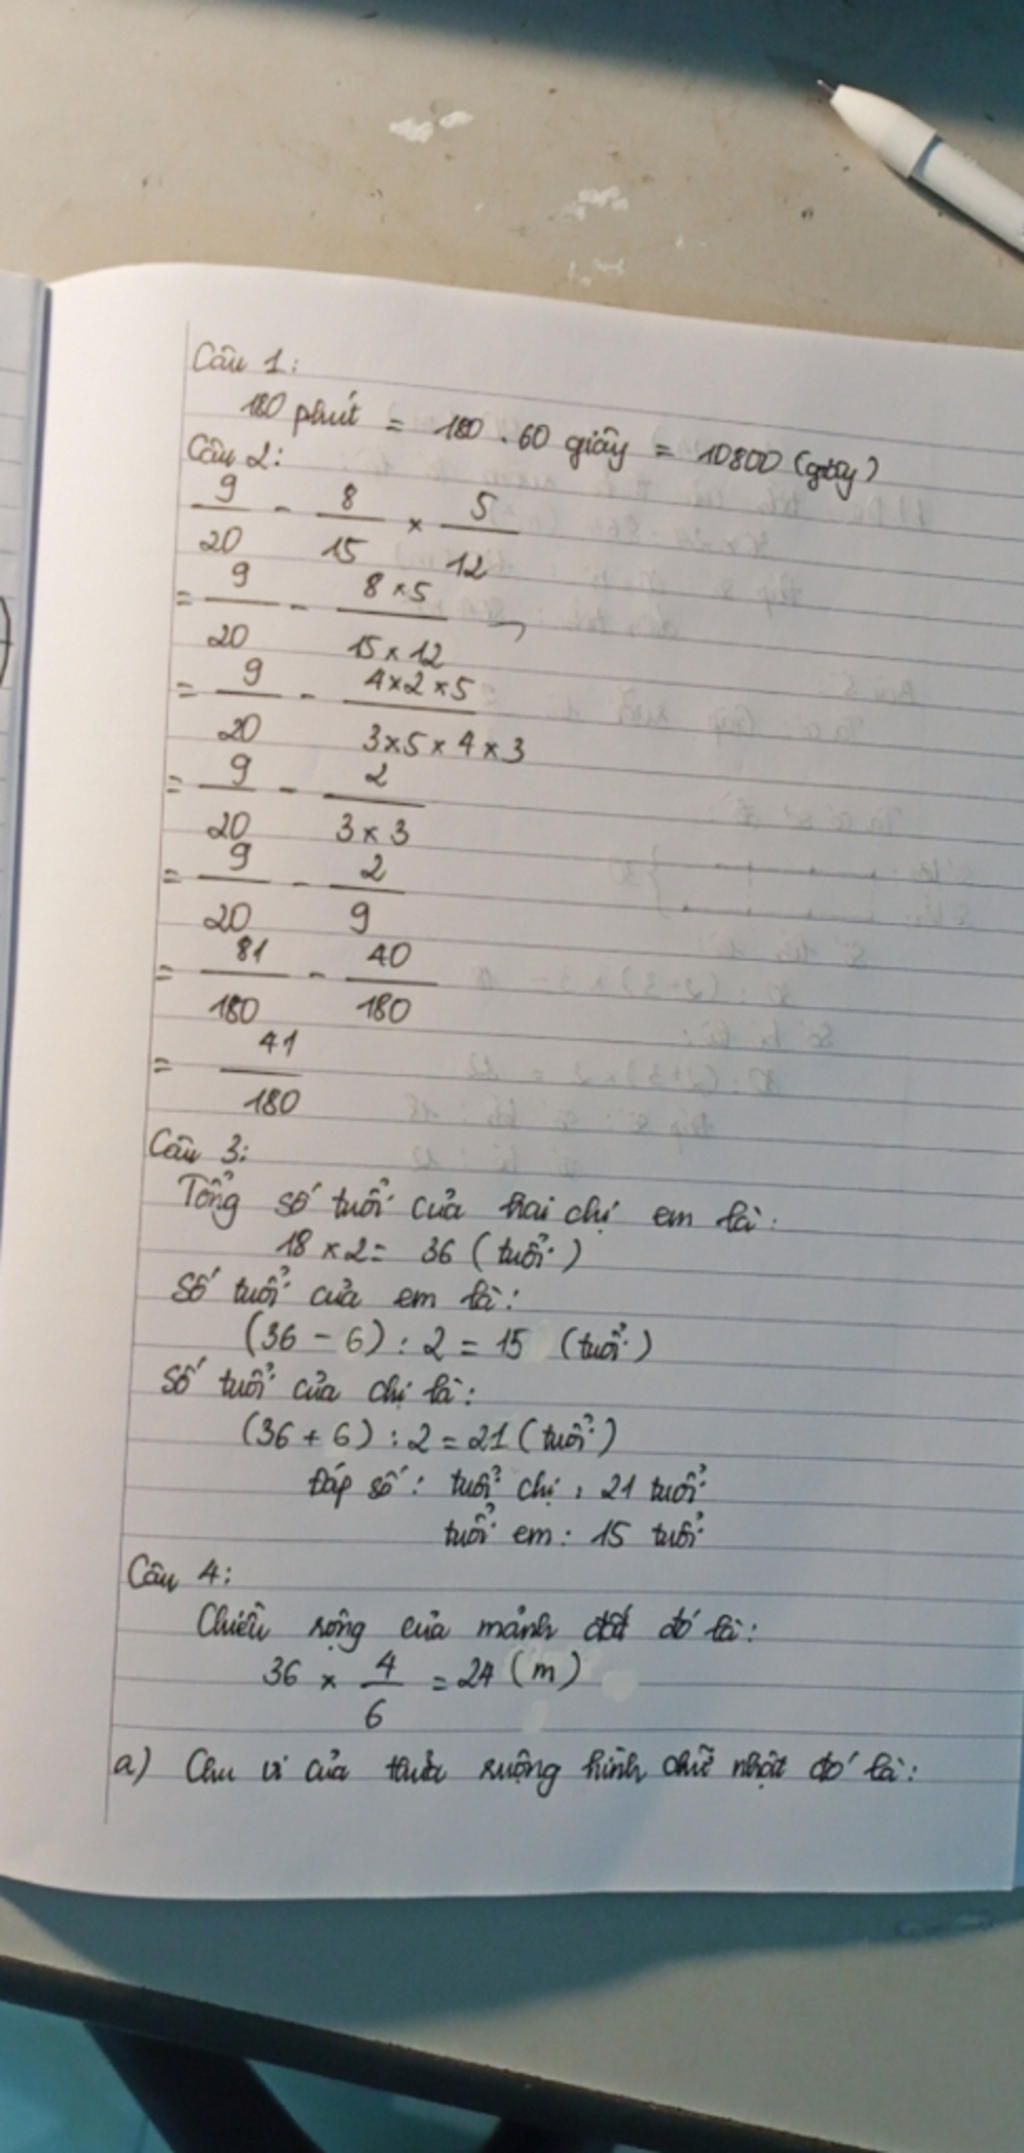 Câu 1:
180 phút = 180 . 60 giây = 10800 (giây)
Câu 2:
9/20 - 8/15 × 5/12
= 9/20 - 8×5/15×12
= 9/20 - 4×2×5/3×5×4×3
= 9/20 - 2/3×3
= 9/20 - 2/9
= 81/180 - 40/180
= 41/180
Câu 3:
Tổng số tuổi của hai chị em là:
18 × 2 = 36 (tuổi)
Số tuổi của em là:
(36 - 6) : 2 = 15 (tuổi)
Số tuổi của chị là:
(36 + 6) : 2 = 21 (tuổi)
Đáp số: tuổi chị : 21 tuổi
tuổi em : 15 tuổi
Câu 4:
Chiều rộng của mảnh đất đó là:
36 × 4/6 = 24 (m)
a) Chu vi của thửa ruộng hình chữ nhật đó là: